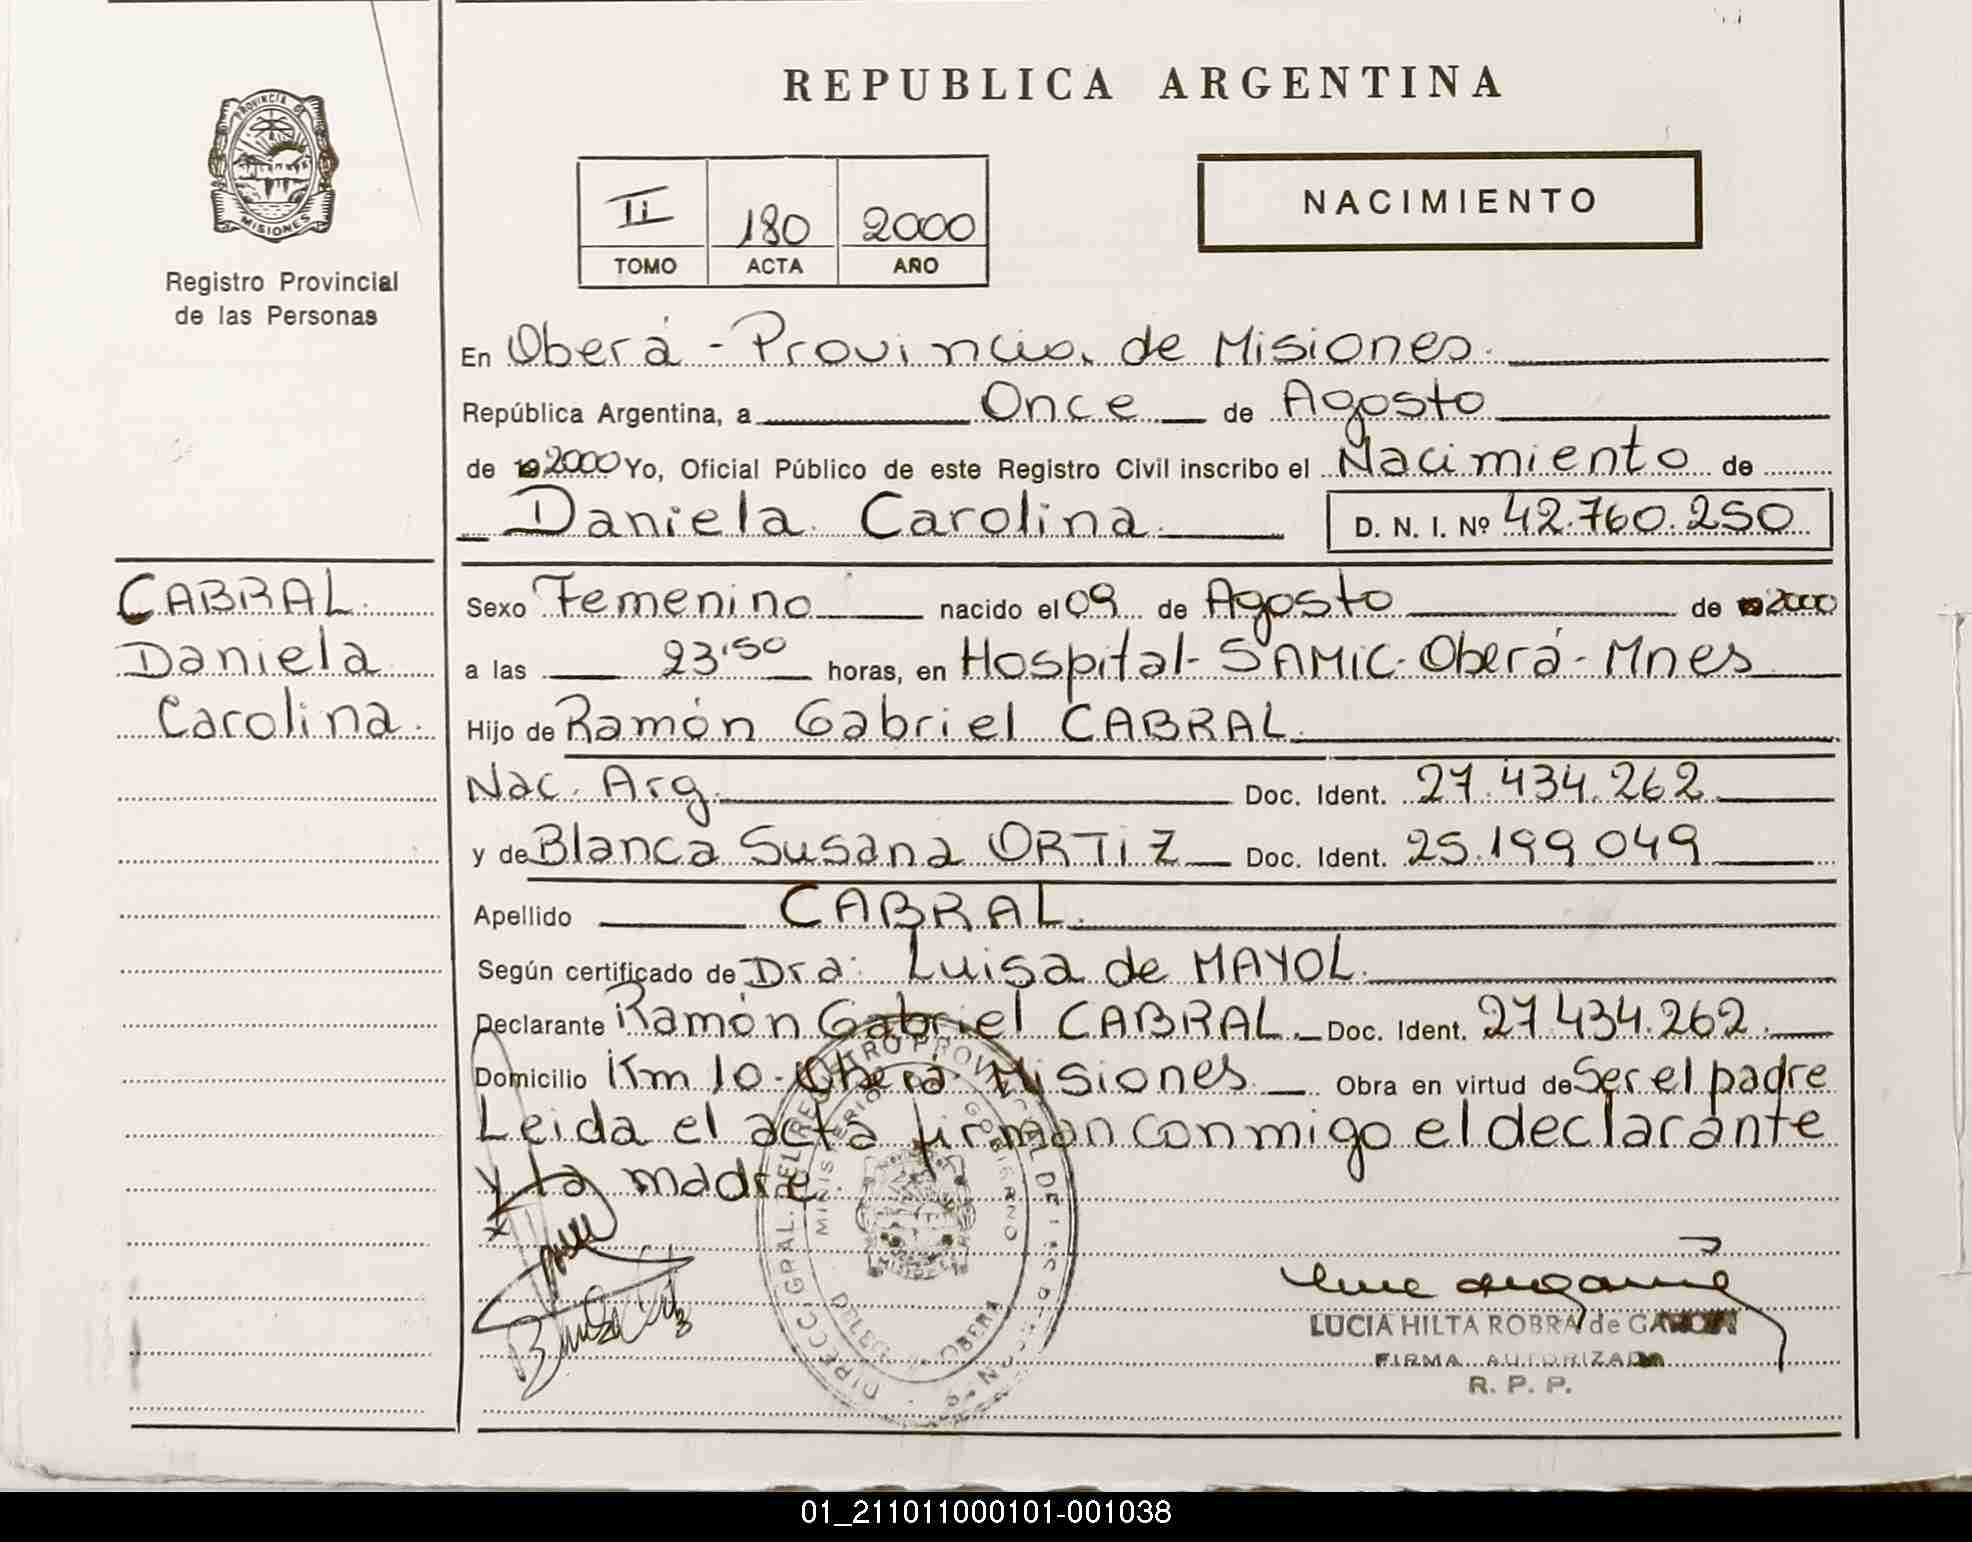 REPUBLICA ARGENTINA
PROVINCIA DE
MISIONES
Registro Provincial
de las Personas
II 180 2000
TOMO ACTA AÑO
NACIMIENTO
En Oberá - Provincia de Misiones.
República Argentina, a Once de Agosto
de 2000 Yo, Oficial Público de este Registro Civil inscribo el Nacimiento de
Daniela Carolina D. N. I. Nº 42.760.250
CABRAL
Daniela
Carolina.
Sexo Femenino nacido el 09 de Agosto de 2000
a las 23'50 horas, en Hospital - SAMIC - Oberá - Mnes
Hijo de Ramón Gabriel CABRAL.
Nac. Arg. Doc. Ident. 27.434.262
y de Blanca Susana ORTIZ Doc. Ident. 25.199.049
Apellido CABRAL.
Según certificado de Dra: Luisa de MAYOL.
Declarante Ramón Gabriel CABRAL. Doc. Ident. 27.434.262.
Domicilio Km 10 - Oberá - Misiones Obra en virtud de Ser el padre
Leida el acta firman conmigo el declarante
y la madre.
DIRECC. GRAL. DEL REGISTRO PROVINCIAL DE LAS PERSONAS
MINISTERIO GOBIERNO
MISIONES
OBERA
LUCIA HILTA ROBRA de
FIRMA AUTORIZADA
R. P. P.
01_211011000101-001038